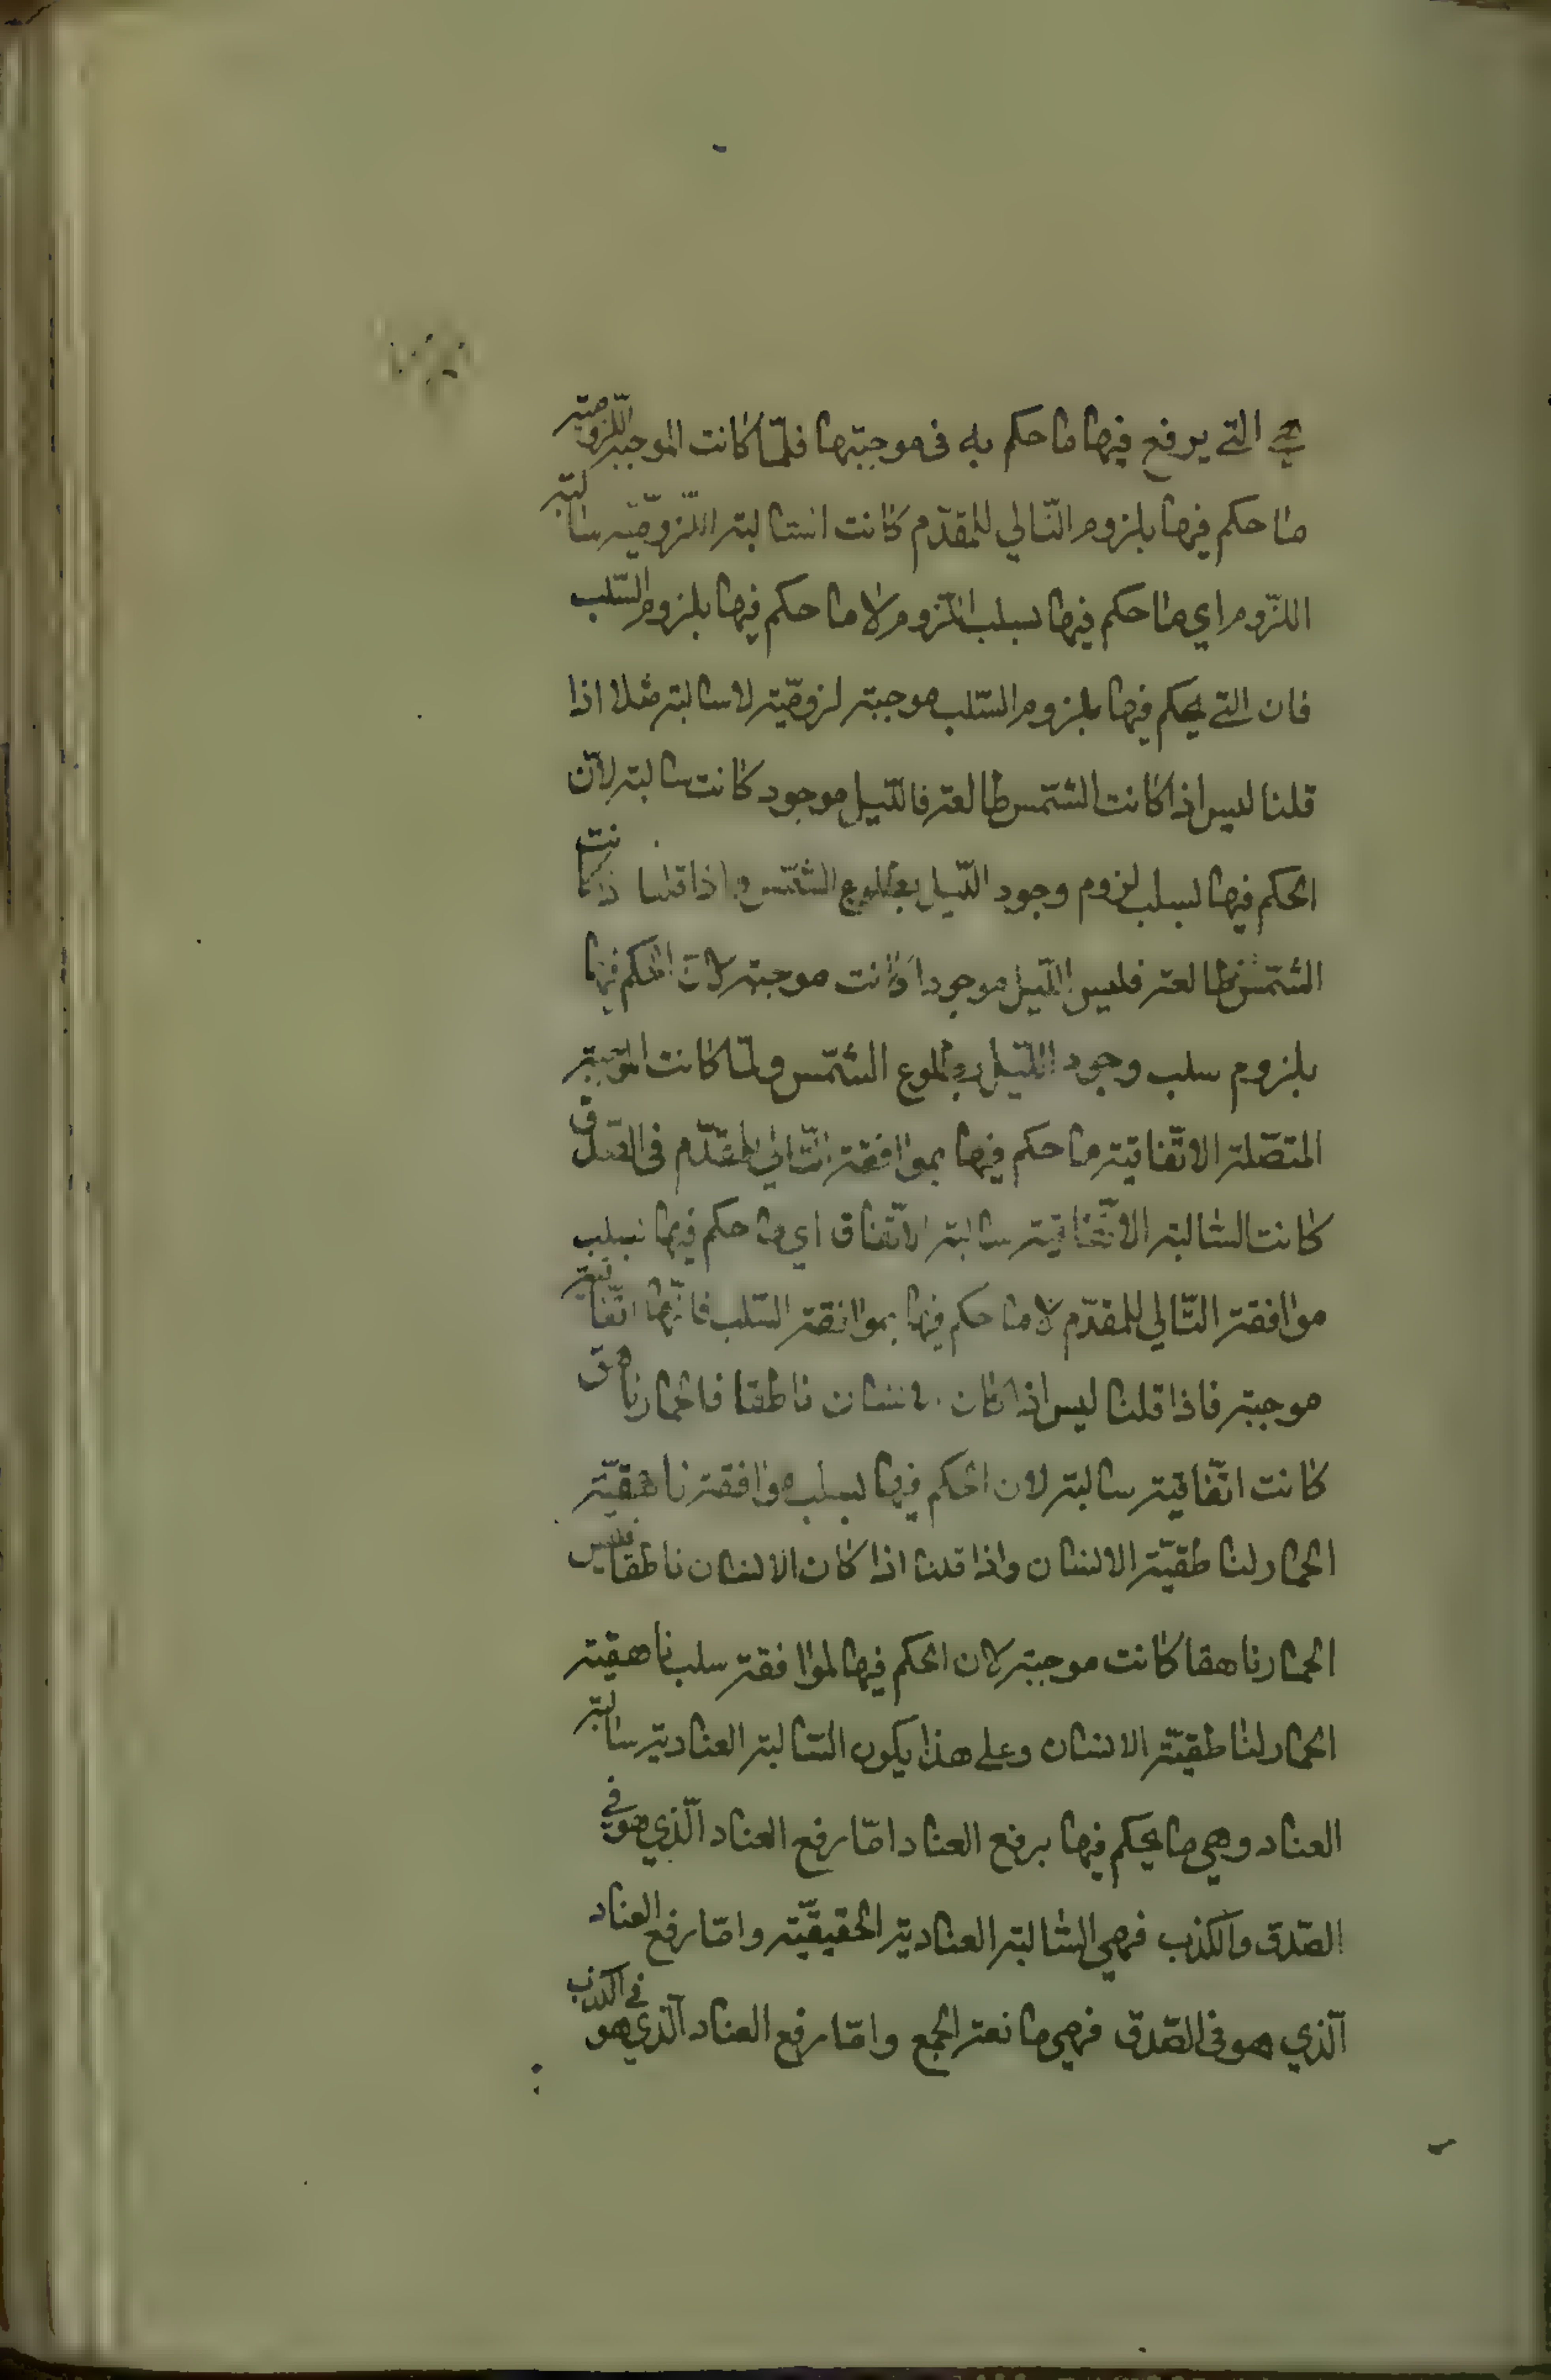 هي التي يرفع فيها ما حكم به في موجبتها فلمّا كانت الموجبة اللزوميّة
ما حكم فيها بلزوم التّالي للمقدّم كانت السّالبة اللّزوميّة سالبة
اللّزوم اي ما حكم فيها بسلب اللّزوم لا ما حكم فيها بلزوم السّلب
فان التي يحكم فيها بلزوم السّلب موجبة لزوميّة لا سالبة مثلا اذا
قلنا ليس اذا كانت الشّمس طالعة فاللّيل موجود كانت سالبة لانّ
الحكم فيها بسلب لزوم وجود اللّيل بطلوع الشّمس و اذا قلنا اذا كانت
الشّمس طالعة فليس اللّيل موجودا كانت موجبة لانّ الحكم فيها
بلزوم سلب وجود اللّيل بطلوع الشّمس ولمّا كانت الموجبة
المتّصلة الاتّفاقيّة ما حكم فيها بموافقة التّالي للمقدّم في الصّدق
كانت السّالبة الاتّفاقيّة سالبة الاتّفاق اي ما حكم فيها بسلب
موافقة التّالي للمقدّم لا ما حكم فيها بموافقة السّلب فانّها اتّفاقيّة
موجبة فاذا قلنا ليس اذا كان الانسان ناطقا فالحمار ناهق
كانت اتّفاقيّة سالبة لان الحكم فيها بسلب موافقة ناهقيّة
الحمار لناطقيّة الانسان واذا قلنا اذا كان الانسان ناطقا فليس
الحمار ناهقا كانت موجبة لان الحكم فيها لموافقة سلب ناهقيّة
الحمار لناطقيّة الانسان وعلى هذا يكون السّالبة العناديّة سالبة
العناد وهي ما يحكم فيها برفع العناد امّا رفع العناد الّذي هو في
الصّدق والكذب فهي السّالبة العناديّة الحقيقيّة وامّا رفع العناد
الّذي هو في الصّدق فهي مانعة الجمع وامّا رفع العناد الّذي هو في الكذب